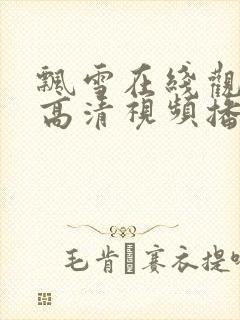 飄雪在綫觀
高清視頻播
毛肯賽衣提